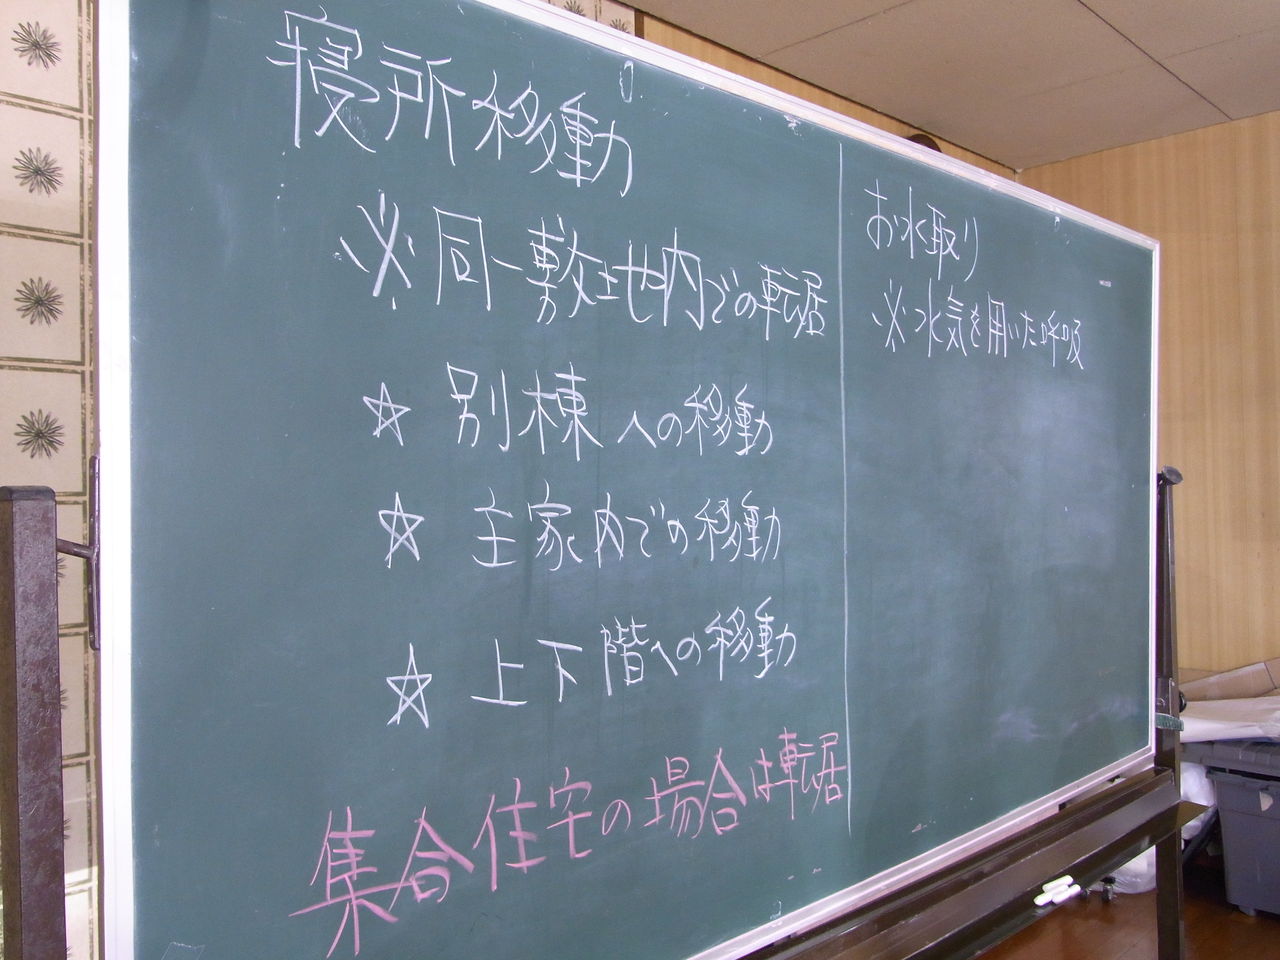 寝所移動
※同一敷地内での転居
☆ 別棟への移動
☆ 主家内での移動
☆ 上下階への移動
集合住宅の場合は転居
お水取り
※水気を用いた呼吸